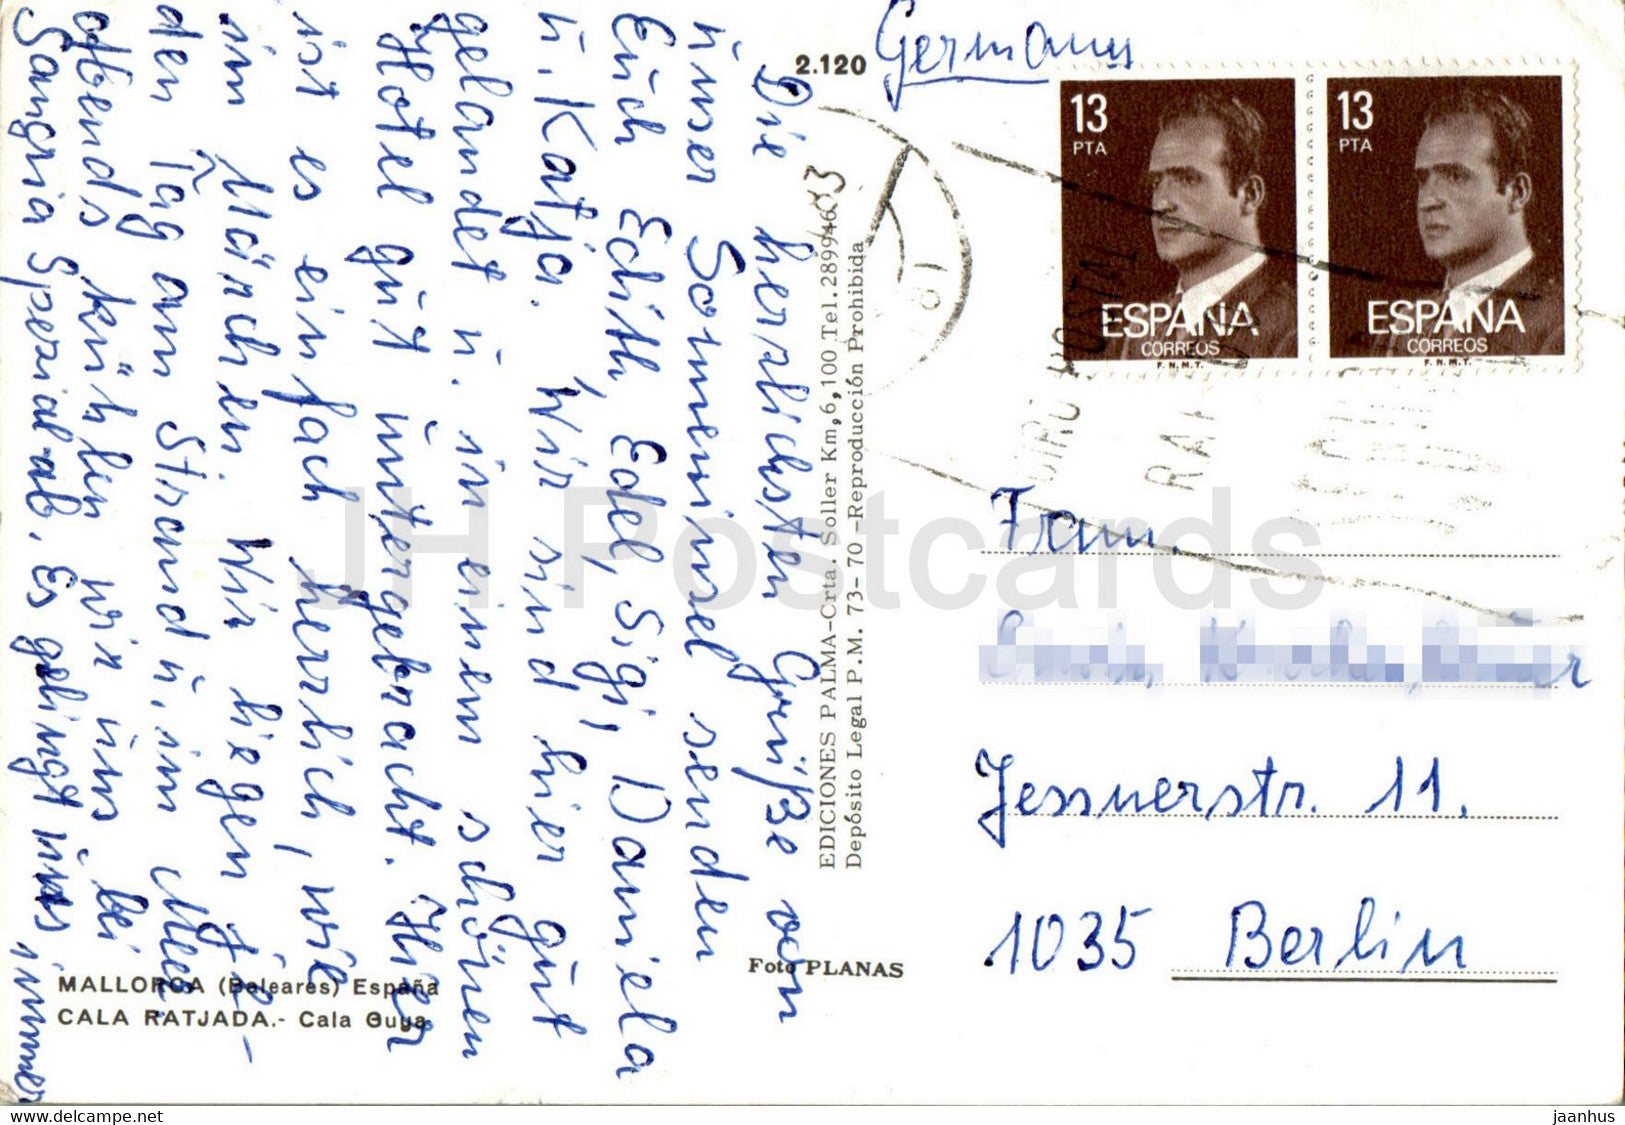 Die herzlichsten Grüße von
unser Sonneninsel senden
Euch Edith, Edel, Sigi, Daniela
u. Katja. Wir sind hier gut
gelandet u. in einem schönen
Hotel gut untergebracht. Hier
ist es einfach herrlich, wie
im Märchen. Wir liegen je-
den Tag am Strand u. im Meer
Abends kühlen wir uns bei
Sangria Spezial ab. Es gelingt uns immer
2.120
Germany
13
PTA
ESPAÑA
CORREOS
F.N.M.T.
13
PTA
ESPAÑA
CORREOS
F.N.M.T.
EDICIONES PALMA-Crta. Soller Km, 6,100 Tel. 289946
Depósito Legal P.M. 73-70-Reproducción Prohibida
Foto PLANAS
MALLORCA (Baleares) España
CALA RATJADA.- Cala Guya
Fam.
Jessnerstr. 11.
1035 Berlin
JH Postcards
www.delcampe.net
jaanhus